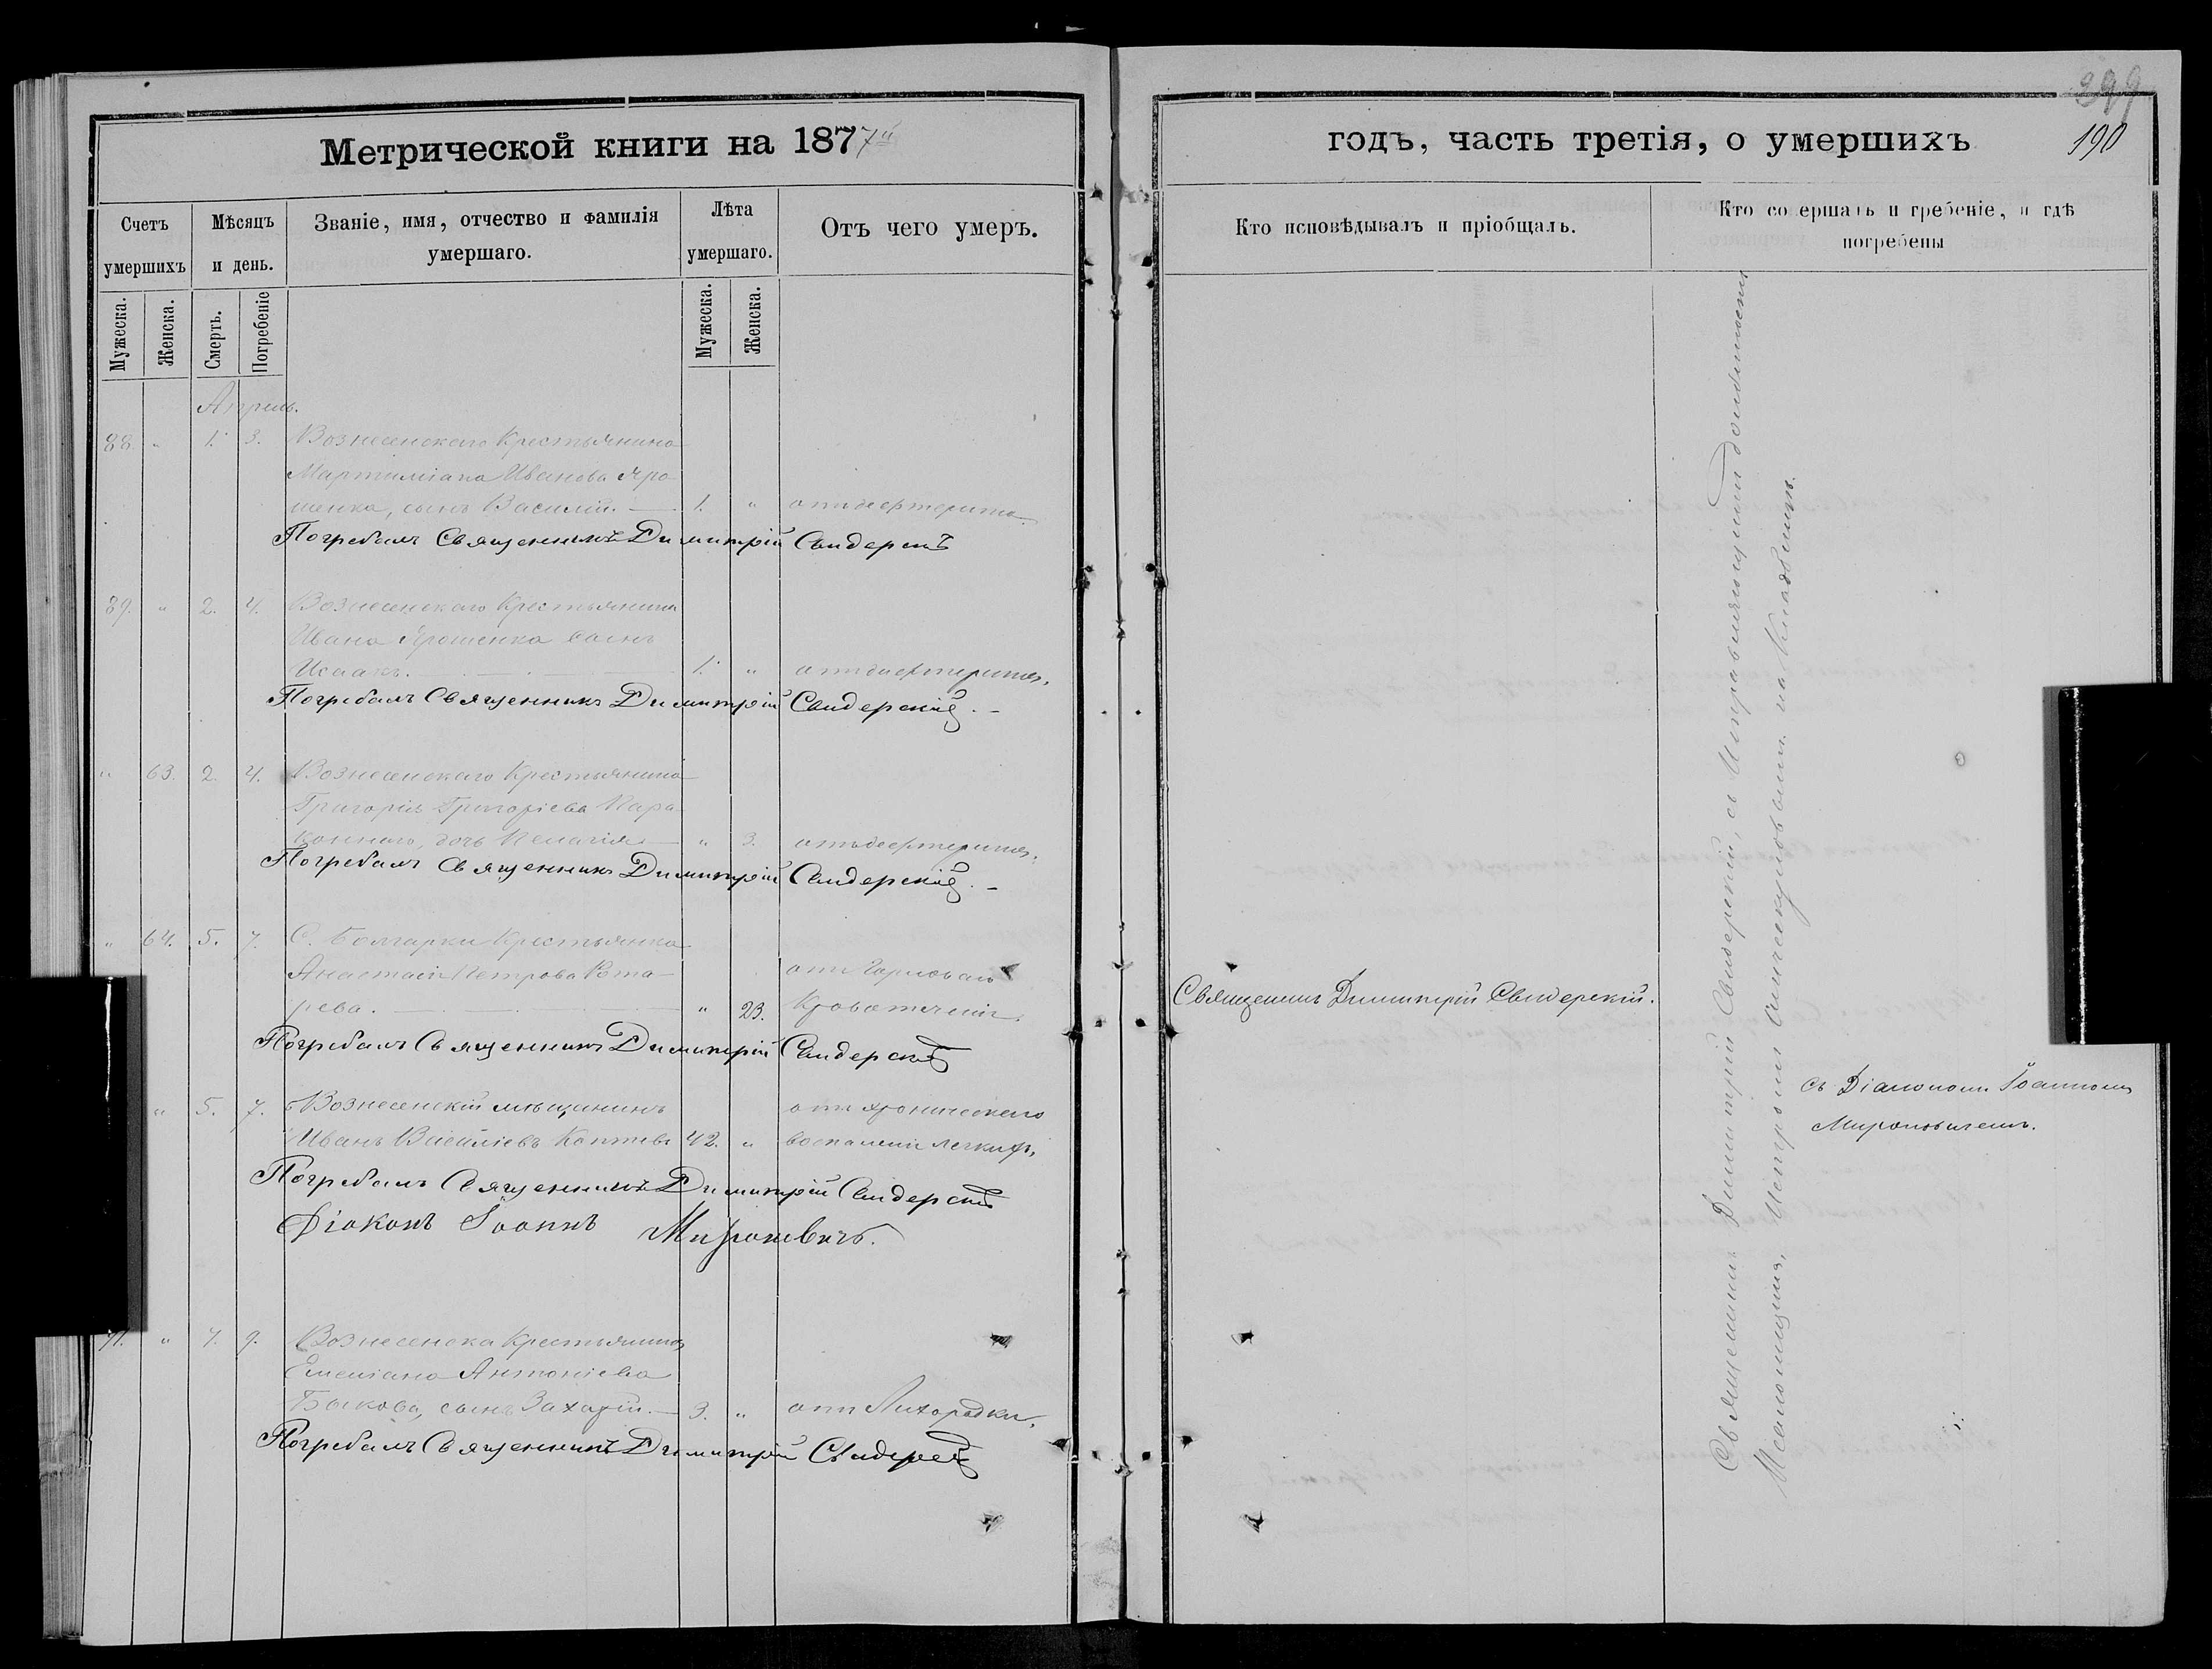 399
Метрической книги на 1877й
годъ, часть третія, о умершихъ
190
Счетъ умершихъ
Мѣсяцъ и день.
Званіе, имя, отчество и фамилія умершаго.
Лѣта умершаго.
Отъ чего умеръ.
Кто исповѣдывалъ и пріобщалъ.
Кто совершалъ погребеніе, и гдѣ погребены
Мужеска.
Женска.
Смерть.
Погребеніе
Мужеска.
Женска.
Апрель.
88. " 1. 3. Вознесенскаго Крестьянина
Мартиміана Иванова Яро-
шенка, сынъ Василій. 1. " отъ дефтерита.
Погребалъ Священникъ Димитрій Свидерскій
89. " 2. 4. Вознесенскаго Крестьянина
Ивана Ярошенка сынъ
Исаакъ. 1. " отъ дифтерита.
Погребалъ Священникъ Димитрій Свидерскій.
" 63. 2. 4. Вознесенскаго Крестьянина
Григорія Григоріева
дочь Пелагія " 3. отъ дефтерита.
Погребалъ Священникъ Димитрій Свидерскій.
" 64. 5. 7. С. Болгарки Крестьянка
Анастасія Петрова
рева. " 23. отъ
Кровотеченія.
Погребалъ Священникъ Димитрій Свидерскій
Священникъ Димитрій Свидерскій.
" 5. 7. Вознесенскій мѣщанинъ отъ хроническаго
Иванъ Васильевъ Коптевъ 42. " воспаленія легкихъ.
Погребалъ Священникъ Димитрій Свидерскій
Діаконъ Іоаннъ Мироновичъ.
съ Діакономъ Іоанномъ
Мироновичемъ.
91. " 7. 9. Вознесенска Крестьянина
Емеліана Антоніева
Быкова, сынъ Захарій. 3. " отъ Лихорадки.
Погребалъ Священникъ Димитрій Свидерскій
Священникъ Димитрій Свидерскій, съ Исправляющимъ должность
Псаломщика, Петромъ на Кладбищѣ.